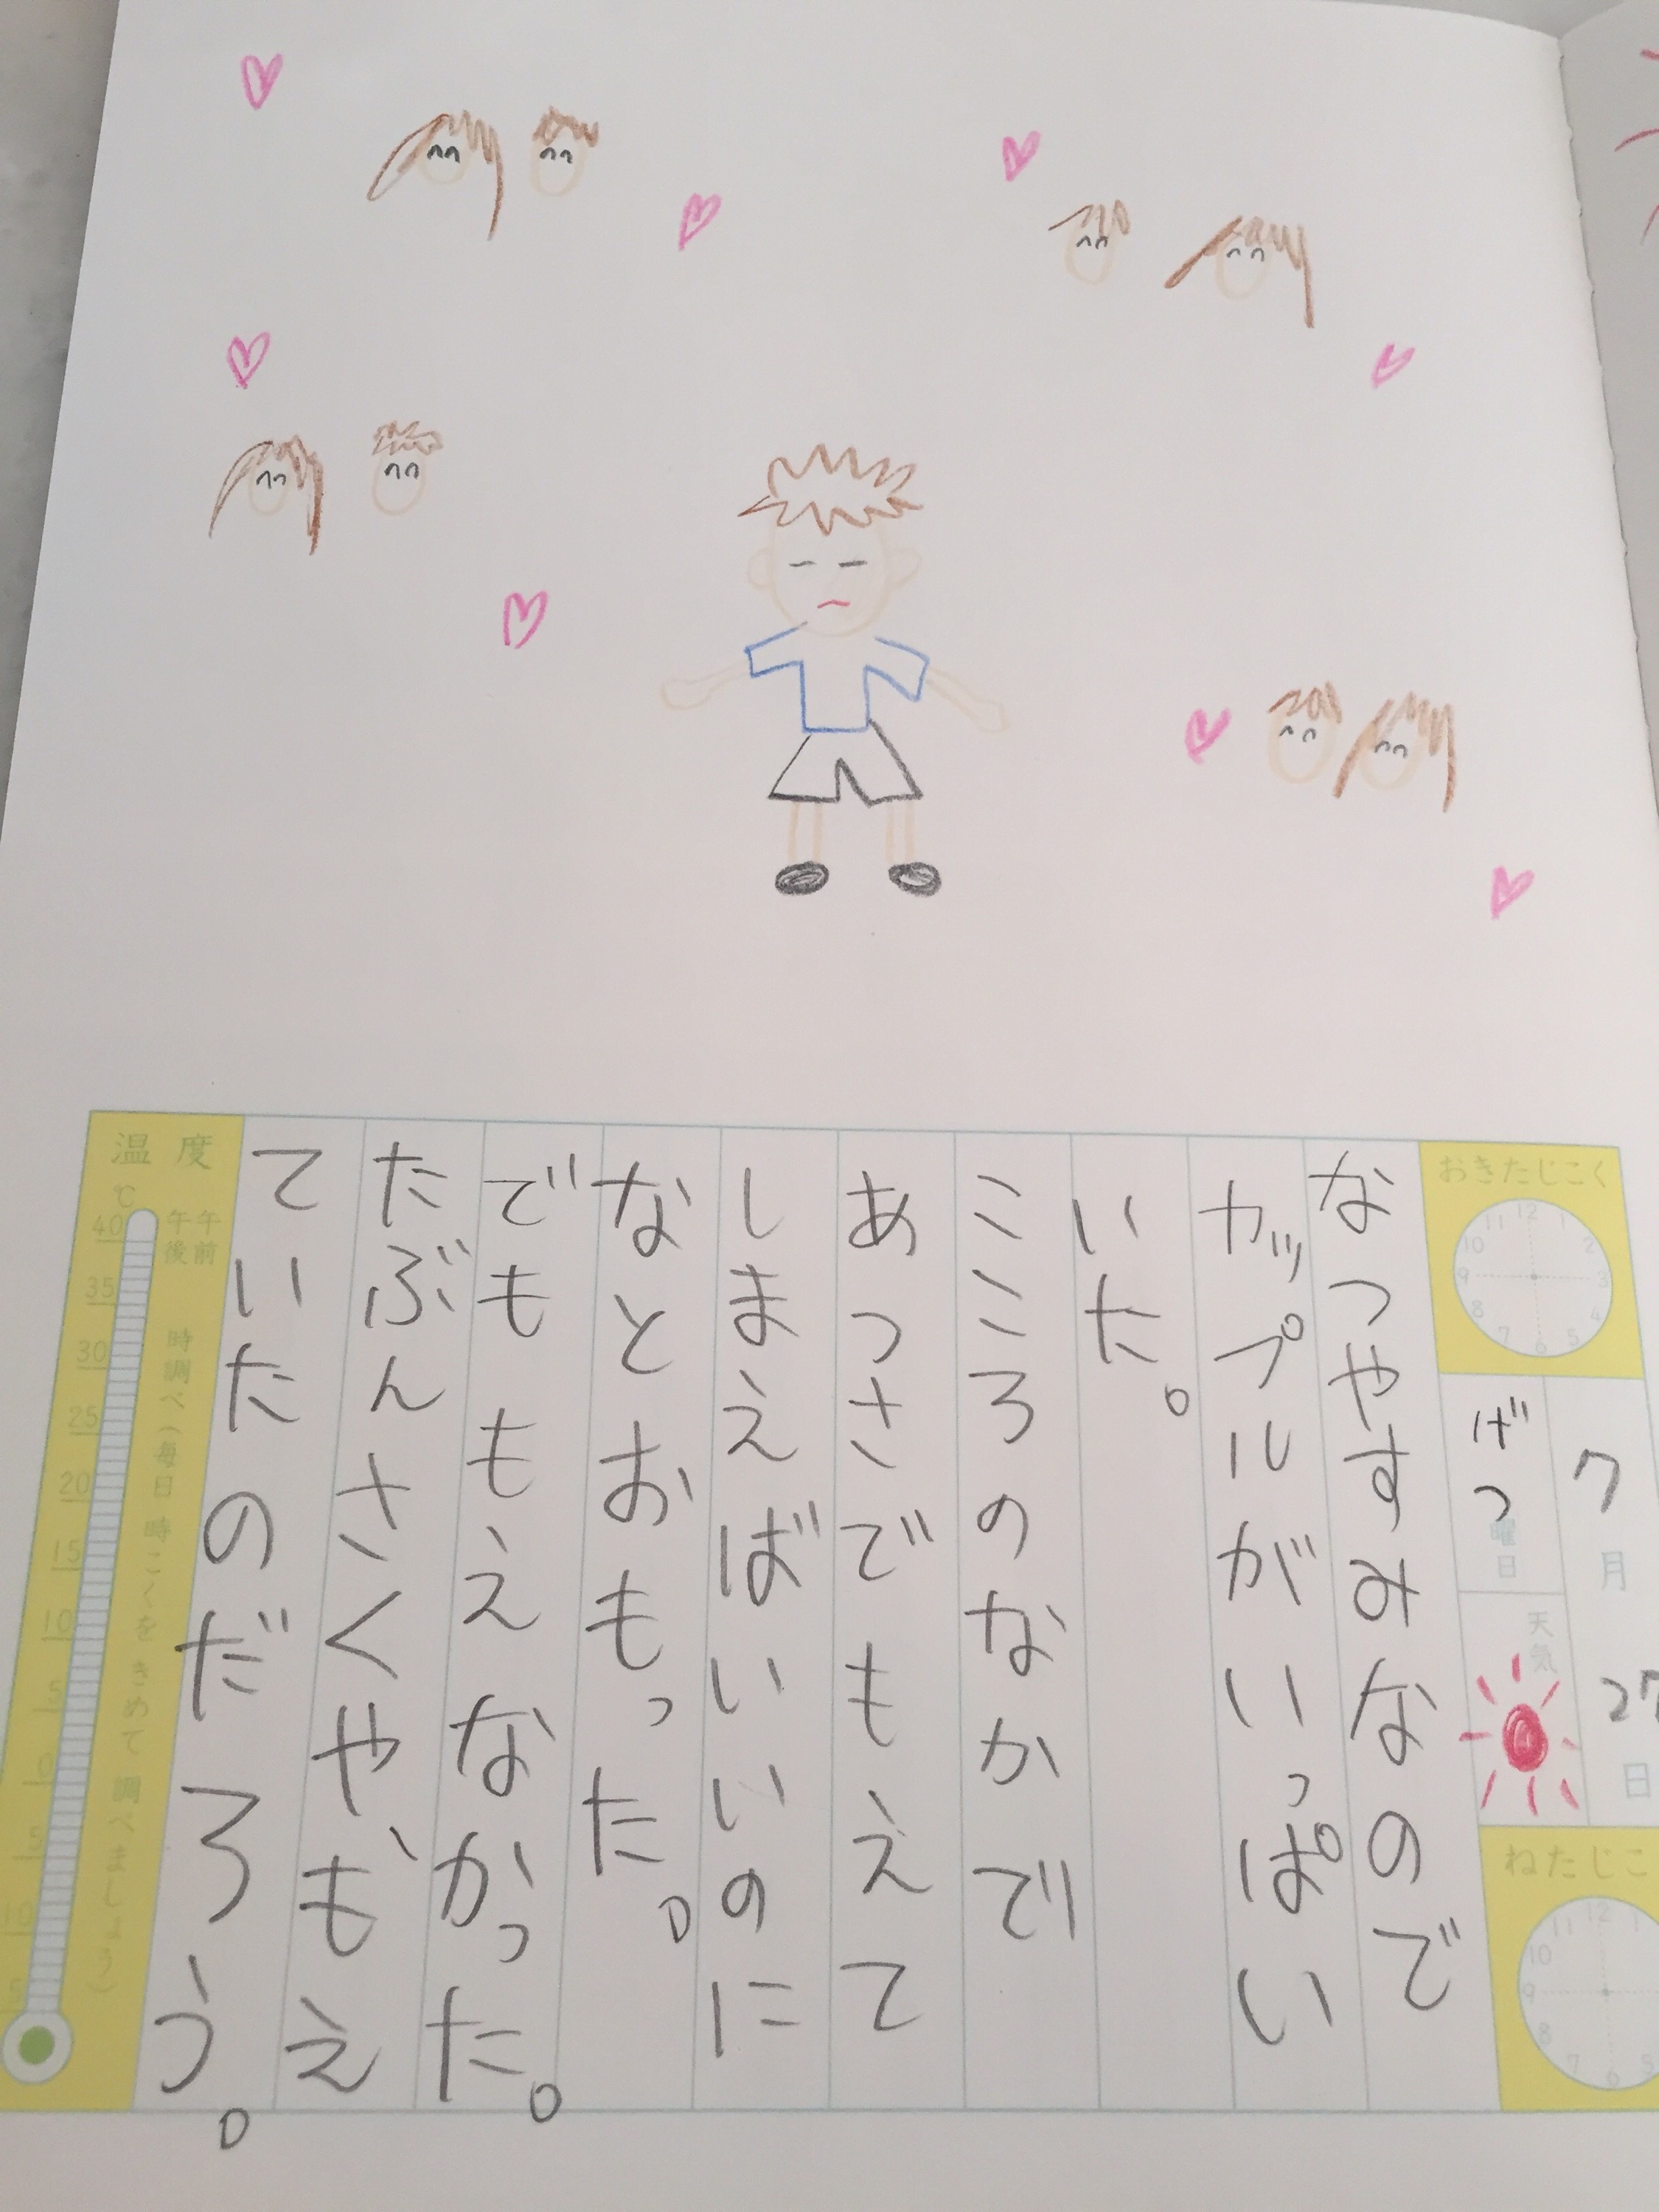 おきたじこく
12
1
2
3
4
5
6
7
8
9
10
11
7月27日
げつ曜日
天気
ねたじこ
12
1
11
10
9
8
7
6
5
なつやすみなので
カップルがいっぱい
いた。
こころのなかで
あつさでもえて
しまえばいいのに
なとおもった。
でももえなかった。
たぶんさくやもえ
ていたのだろう。
温度
℃
午前
午後
時調べ(毎日時こくをきめて調べましょう)
40
35
30
25
20
15
10
5
0
5
10
5